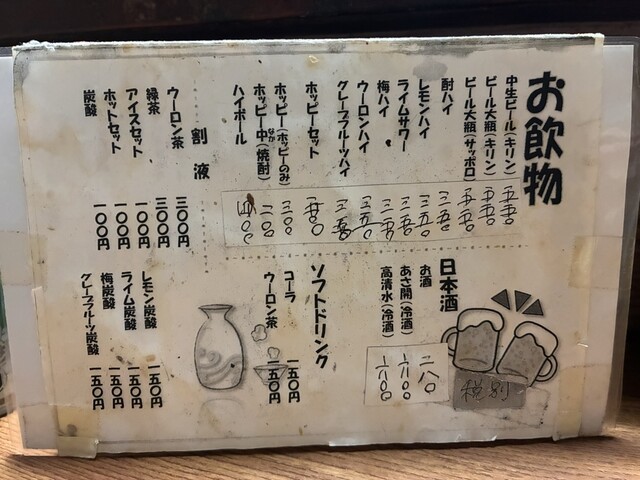 お飲物
中生ビール(キリン) 五五〇
ビール大瓶(キリン) 五五〇
ビール大瓶(サッポロ) 五五〇
酎ハイ 三五〇
レモンハイ 三五〇
ライムサワー 三五〇
梅ハイ 三五〇
ウーロンハイ 三五〇
グレープフルーツハイ 三五〇
ホッピーセット
ホッピー(ホッピーのみ) 三〇〇
ホッピー中(焼酎) 二〇〇
なか
ハイボール
割液
ウーロン茶 三〇〇円
緑茶 三〇〇円
アイスセット 一〇〇円
ホットセット 一〇〇円
炭酸 一〇〇円
日本酒
お酒 二八〇
あさ開(冷酒)
高清水(冷酒)
ソフトドリンク
コーラ 一五〇円
ウーロン茶 一五〇円
レモン炭酸 一五〇円
ライム炭酸 一五〇円
梅炭酸 一五〇円
グレープフルーツ炭酸 一五〇円
税別